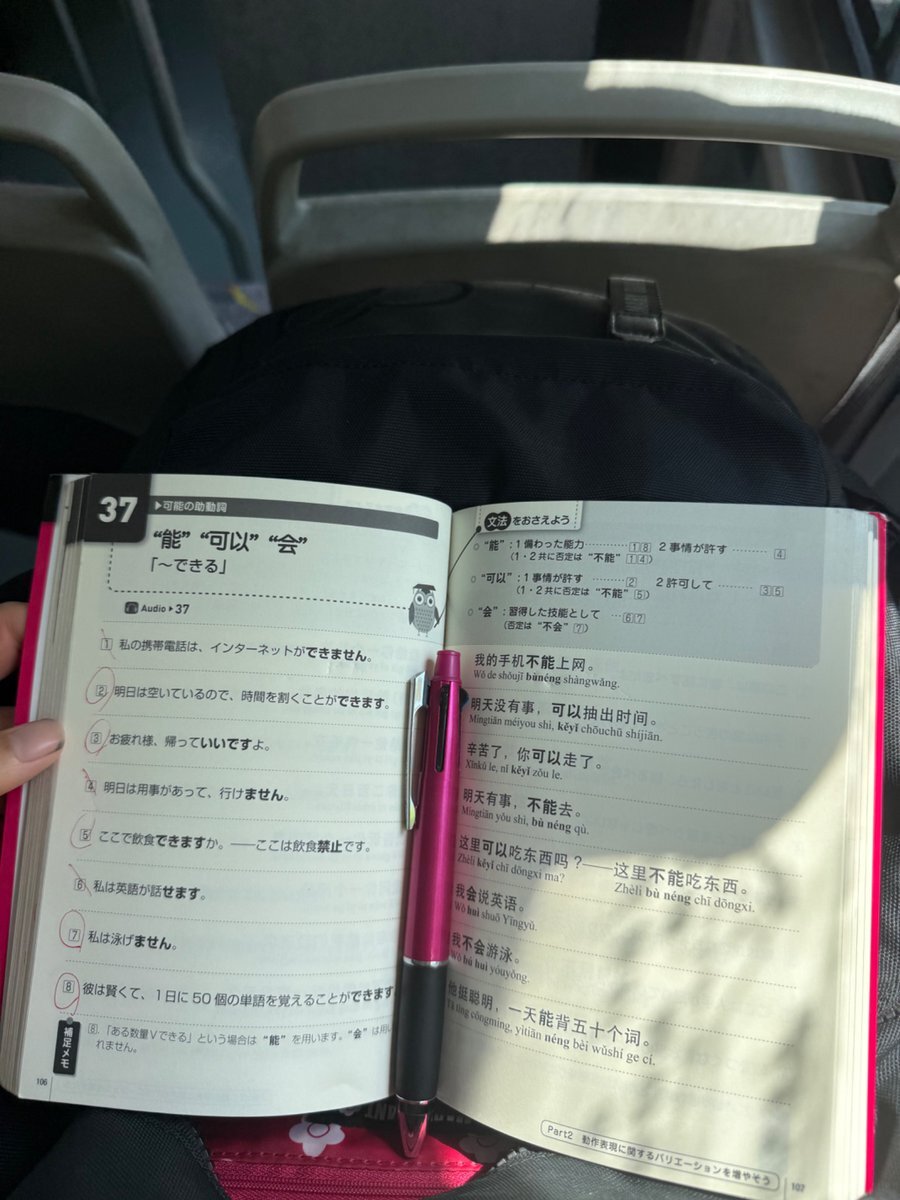 37
▶可能の助動詞
“能” “可以” “会”
「〜できる」
Audio ▸ 37
1 私の携帯電話は、インターネットができません。
2 明日は空いているので、時間を割くことができます。
3 お疲れ様、帰っていいですよ。
4 明日は用事があって、行けません。
5 ここで飲食できますか。——ここは飲食禁止です。
6 私は英語が話せます。
7 私は泳げません。
8 彼は賢くて、1日に50個の単語を覚えることができます
補足メモ
8.「ある数量Vできる」という場合は“能”を用います。“会”は用い
れません。
106
文法をおさえよう
○ “能”:1 備わった能力………1 8 2 事情が許す………4
(1・2共に否定は“不能”1 4)
○ “可以”:1 事情が許す………2 2 許可して………3 5
(1・2共に否定は“不能”5)
○ “会”:習得した技能として …6 7
(否定は“不会”7)
我的手机不能上网。
Wǒ de shǒujī bùnéng shàngwǎng.
明天没有事，可以抽出时间。
Míngtiān méiyou shì, kěyǐ chōuchū shíjiān.
辛苦了，你可以走了。
Xīnkǔ le, nǐ kěyǐ zǒu le.
明天有事，不能去。
Míngtiān yǒu shì, bù néng qù.
这里可以吃东西吗？——这里不能吃东西。
Zhèli kěyǐ chī dōngxi ma? Zhèli bù néng chī dōngxi.
我会说英语。
Wǒ huì shuō Yīngyǔ.
我不会游泳。
Wǒ bú huì yóuyǒng.
他挺聪明，一天能背五十个词。
Tā tǐng cōngming, yìtiān néng bèi wǔshí ge cí.
Part2 動作表現に関するバリエーションを増やそう
107